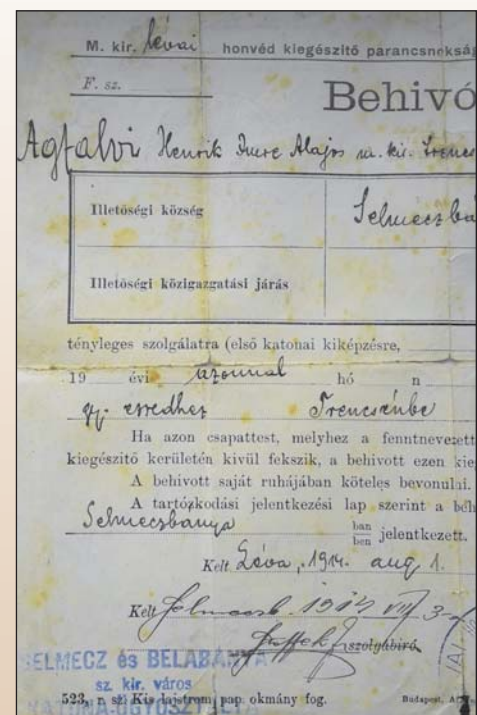 M. kir. lévai honvéd kiegészitő parancsnokság
F. sz.
Behivó
Agfalvi Henrik Imre Alajos m. kir. trencs
Illetőségi község Selmeczbá
Illetőségi közigazgatási járás
tényleges szolgálatra (első katonai kiképzésre,
19 évi azonnal hó n
gy. ezredhez Trencsénbe
Ha azon csapattest, melyhez a fenntnevezett
kiegészitő kerületén kivül fekszik, a behivott ezen kie
A behivott saját ruhájában köteles bevonulni.
A tartózkodási jelentkezési lap szerint a beh
Selmeczbanya ban ben jelentkezett.
Kelt Léva, 1914. aug 1.
Kelt Selmeczb. 1914 VIII 3-
szolgabiró.
SELMECZ és BÉLABÁNYA
sz. kir. város
KATONA-ÜGYOSZTÁLYA
523. r. sz. Kis lajstrom, pap. okmány fog. Budapest,